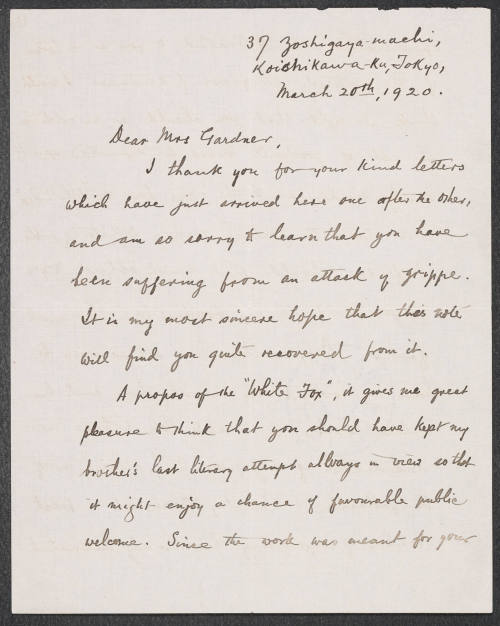 37 Zoshigaya-machi,
Koishikawa-Ku, Tokyo,
March 20th, 1920.
Dear Mrs Gardner,
I thank you for your kind letters
which have just arrived here one after the other,
and am so sorry to learn that you have
been suffering from an attack of grippe.
It is my most sincere hope that this note
will find you quite recovered from it.
A propos of the "White Fox", it gives me great
pleasure to think that you should have kept my
brother's last literary attempt allways in view so that
it might enjoy a chance of favourable public
welcome. Since the work was meant for your